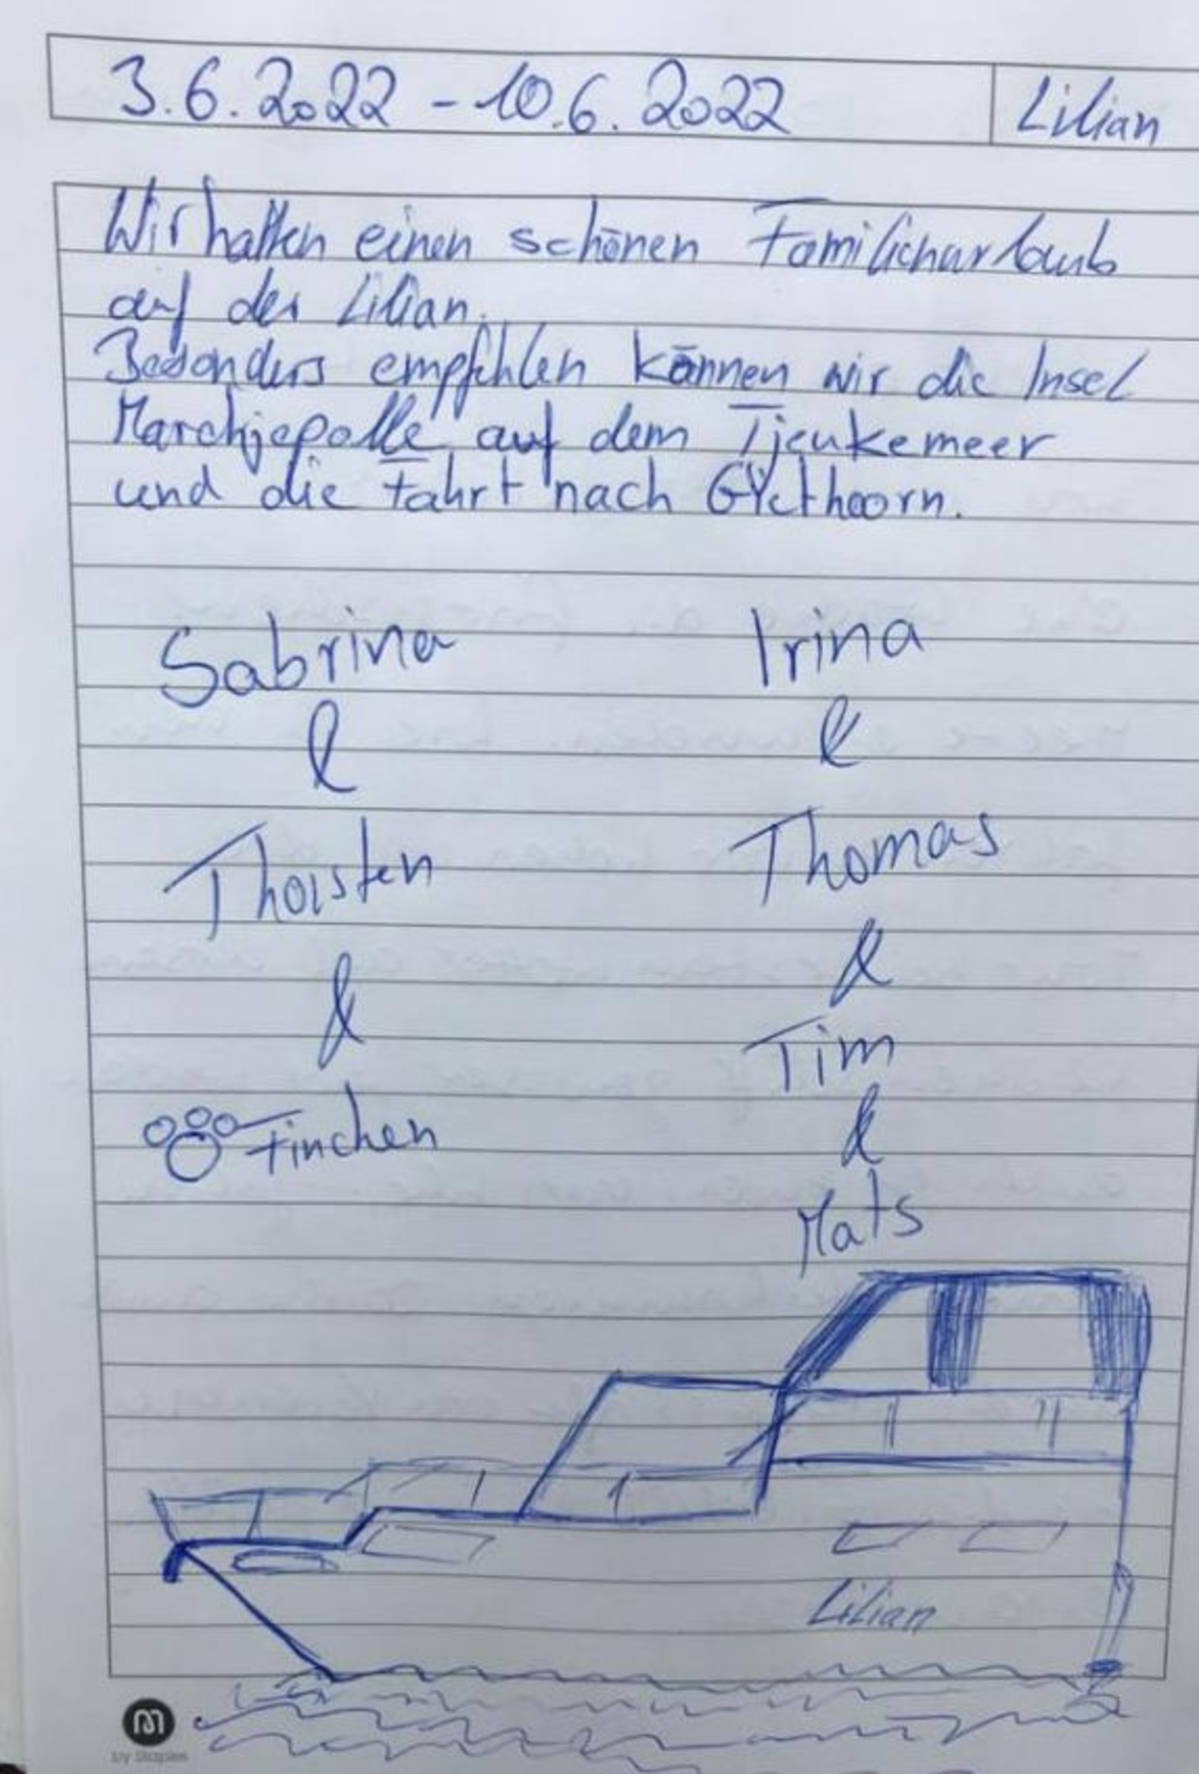 3.6.2022 - 10.6.2022
Lilian
Wir hatten einen schönen Familienurlaub
auf der Lilian.
Besonders empfehlen können wir die Insel
Marchjepolle auf dem Tjeukemeer
und die Fahrt nach GYethoorn.
Sabrina
&
Thorsten
&
Finchen
Irina
&
Thomas
&
Tim
&
Mats
Lilian
by Staples